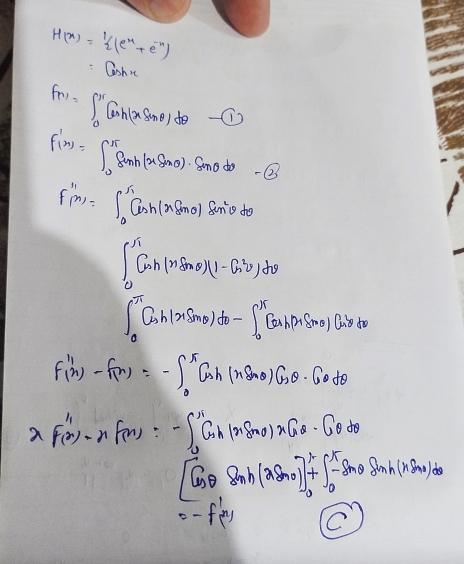 H(x) = 1/2(e^x + e^-x)
= Cosh x
f(x) = ∫₀^π Cosh(x Sinθ) dθ —①
f'(x) = ∫₀^π Sinh(x Sinθ) · Sinθ dθ —②
f''(x) = ∫₀^π Cosh(x Sinθ) Sin²θ dθ
∫₀^π Cosh(x Sinθ)(1 - Cos²θ) dθ
∫₀^π Cosh(x Sinθ) dθ - ∫₀^π Cosh(x Sinθ) Cos²θ dθ
f''(x) - f(x) = -∫₀^π Cosh(x Sinθ) Cosθ · Cosθ dθ
x f''(x) - x f(x) = -∫₀^π Cosh(x Sinθ) x Cosθ · Cosθ dθ
[Cosθ Sinh(x Sinθ)]₀^π + ∫₀^π - Sinθ Sinh(x Sinθ) dθ
= - f'(x)
Ⓒ